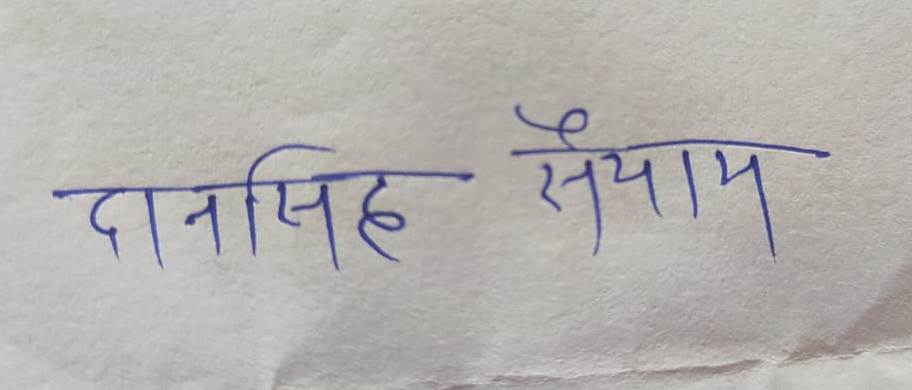 दानसिह सैयाम